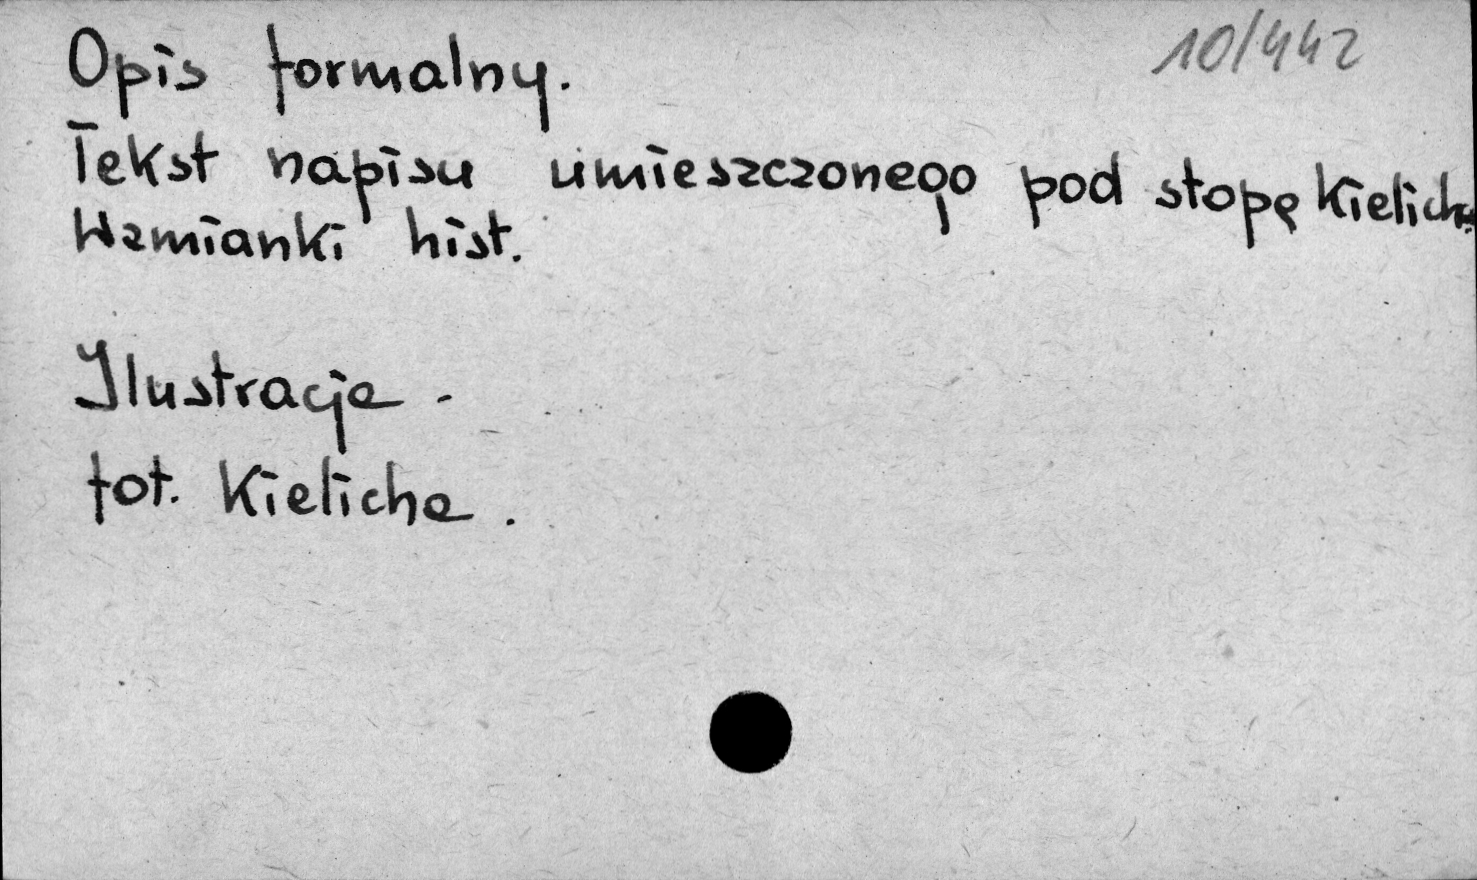 10/442
Opis formalny.
Tekst napisu umieszczonego pod stopę kielicha
Wzmianki hist.
Ilustracje -
fot. kielicha.